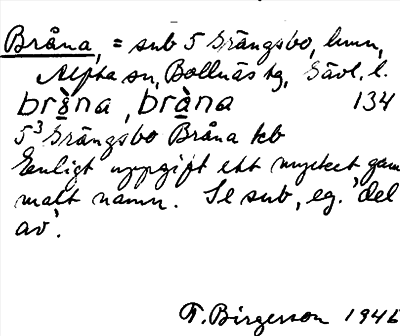 Bråna, = sub 5 Grängsbo, lmn,
Alfta sn, Bollnäs tg, Gävl. l.
brä̀na, brà̱na 134
5³ Grängsbo Bråna kb
Enligt uppgift ett mycket gam
malt namn. Se sub, eg. 'del
av'.
F. Birgerson 1946